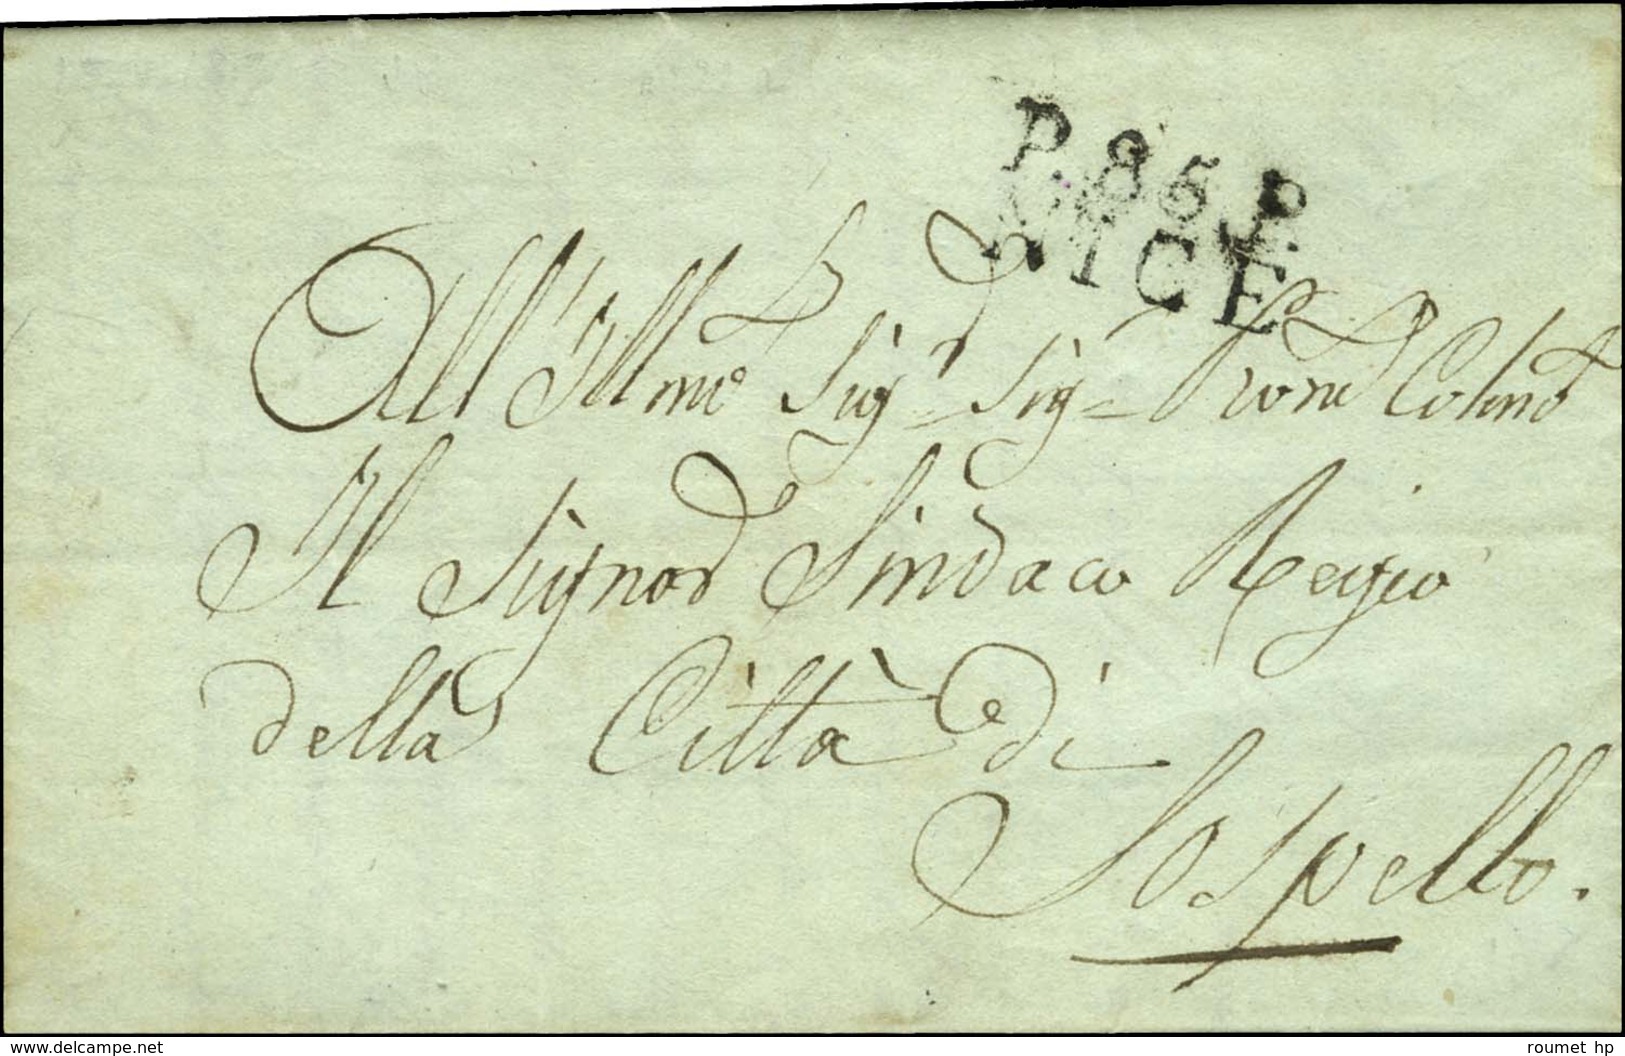 P. 85 P.
NICE
All' Illmo Sigr Sig Prone Colmo
Il Signor Sindaco Regio
della Città di
Sospello.
www.delcampe.net
roumet hp